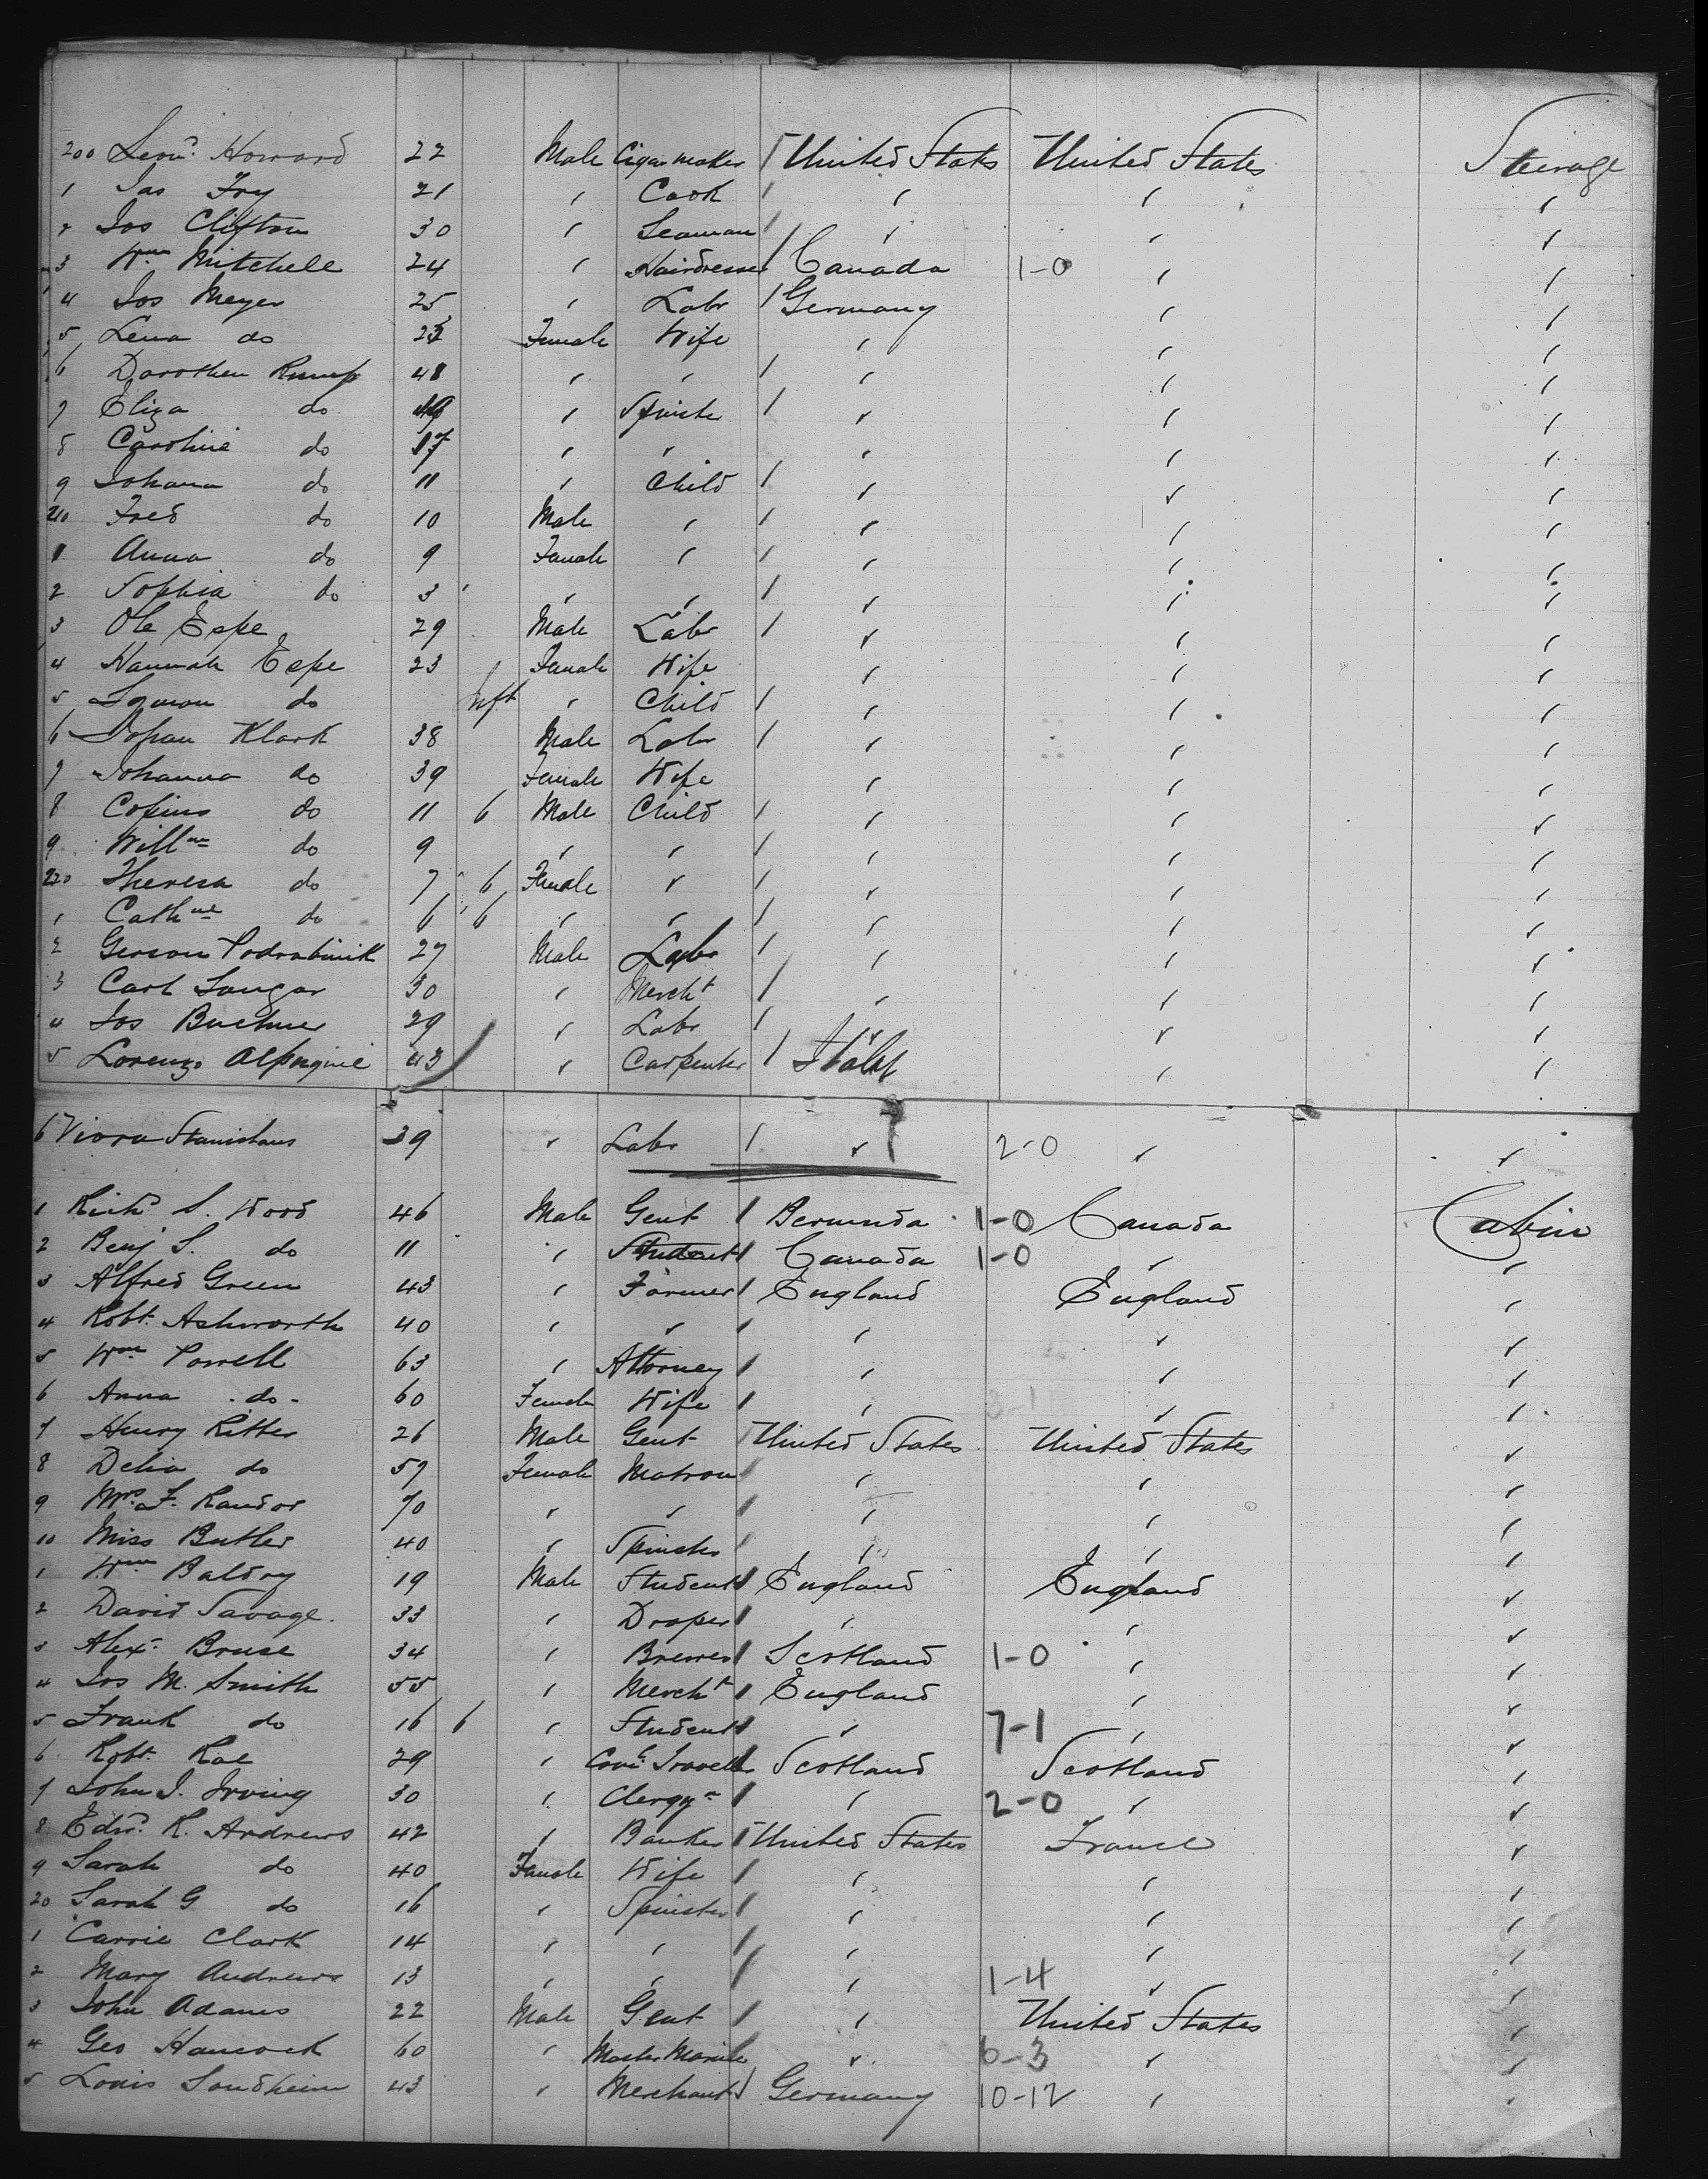 200 Leond. Howard 22 Male Cigar maker / United States United States Steerage
1 Jas Fry 21 " Cook / " " "
2 Jos Clifton 30 " Seaman / " " "
3 Wm Mitchell 24 " Hairdresser / Canada 1-0 " "
4 Jos Meyer 25 " Labr / Germany " "
5 Lena do Female Wife " " "
6 Dorothea Rump 48 " " / " " "
7 Eliza do " Spinster / " " "
8 Caroline do 17 " " " " "
9 Johana do 11 " Child / " " "
210 Fred do 10 Male " / " " "
1 Anna do 9 Female " / " " "
2 Sophia do 3 " " / " " "
3 Ole Espe 29 Male Labr / " " "
4 Hannah Espe 23 Female Wife " " "
5 do Inft " Child / " " "
6 Johan Klark 38 Male Labr / " " "
7 Johanna do 39 Female Wife " " "
8 do 11 6 Male Child / " " "
9 Willm do 9 " " / " " "
220 Theresa do 7 6 Female " / " " "
1 Cathne do 6 6 " " / " " "
2 Gerson Podrabinik 27 Male Labr / " " "
3 Carl Langar 30 " Mercht / " " "
4 Jos Buchner 29 " Labr / " " "
5 Lorenzo 43 " Carpenter / Italy " "
6 Viora Stanislaus 39 " Labr / " 2-0 " "
1 Richd S. Wood 46 Male Gent / Bermuda 1-0 Canada Cabin
2 Benj S. do 11 " Student / Canada 1-0 " "
3 Alfred Green 43 " Farmer / England England "
4 Robt. Ashworth 40 " " / " " "
5 Wm Powell 63 " Attorney / " " "
6 Anna do 60 Female Wife / " 3-1 " "
7 Henry Ritter 26 Male Gent / United States United States "
8 Delia do 57 Female Matron / " " "
9 Mrs F. Randor 70 " " / " " "
10 Miss Butler 40 " Spinster / " " "
1 Wm Baldry 19 Male Student / England England "
2 David Savage 33 " Draper / " " "
3 Alexr. Bruse 34 " Brewer / Scotland 1-0 " "
4 Jos M. Smith 55 " Mercht / England " "
5 Frank do 16 6 " Student / " 7-1 " "
6 Robt. Rae 29 " Coml Traveller / Scotland Scotland "
7 John J. Irving 30 " Clergyn / " 2-0 " "
8 Edwd. R. Andrews 42 " Banker / United States France "
9 Sarah do 40 Female Wife / " " "
20 Sarah G do 16 " Spinster / " " "
1 Carrie Clark 14 " " / " " "
2 Mary Andrews 13 " " / " 1-4 " "
3 John Adams 22 Male Gent / " United States "
4 Geo Hancock 60 " Master Marine " 6-3 " "
5 Louis Sondheim 43 " Merchant / Germany 10-12 " "